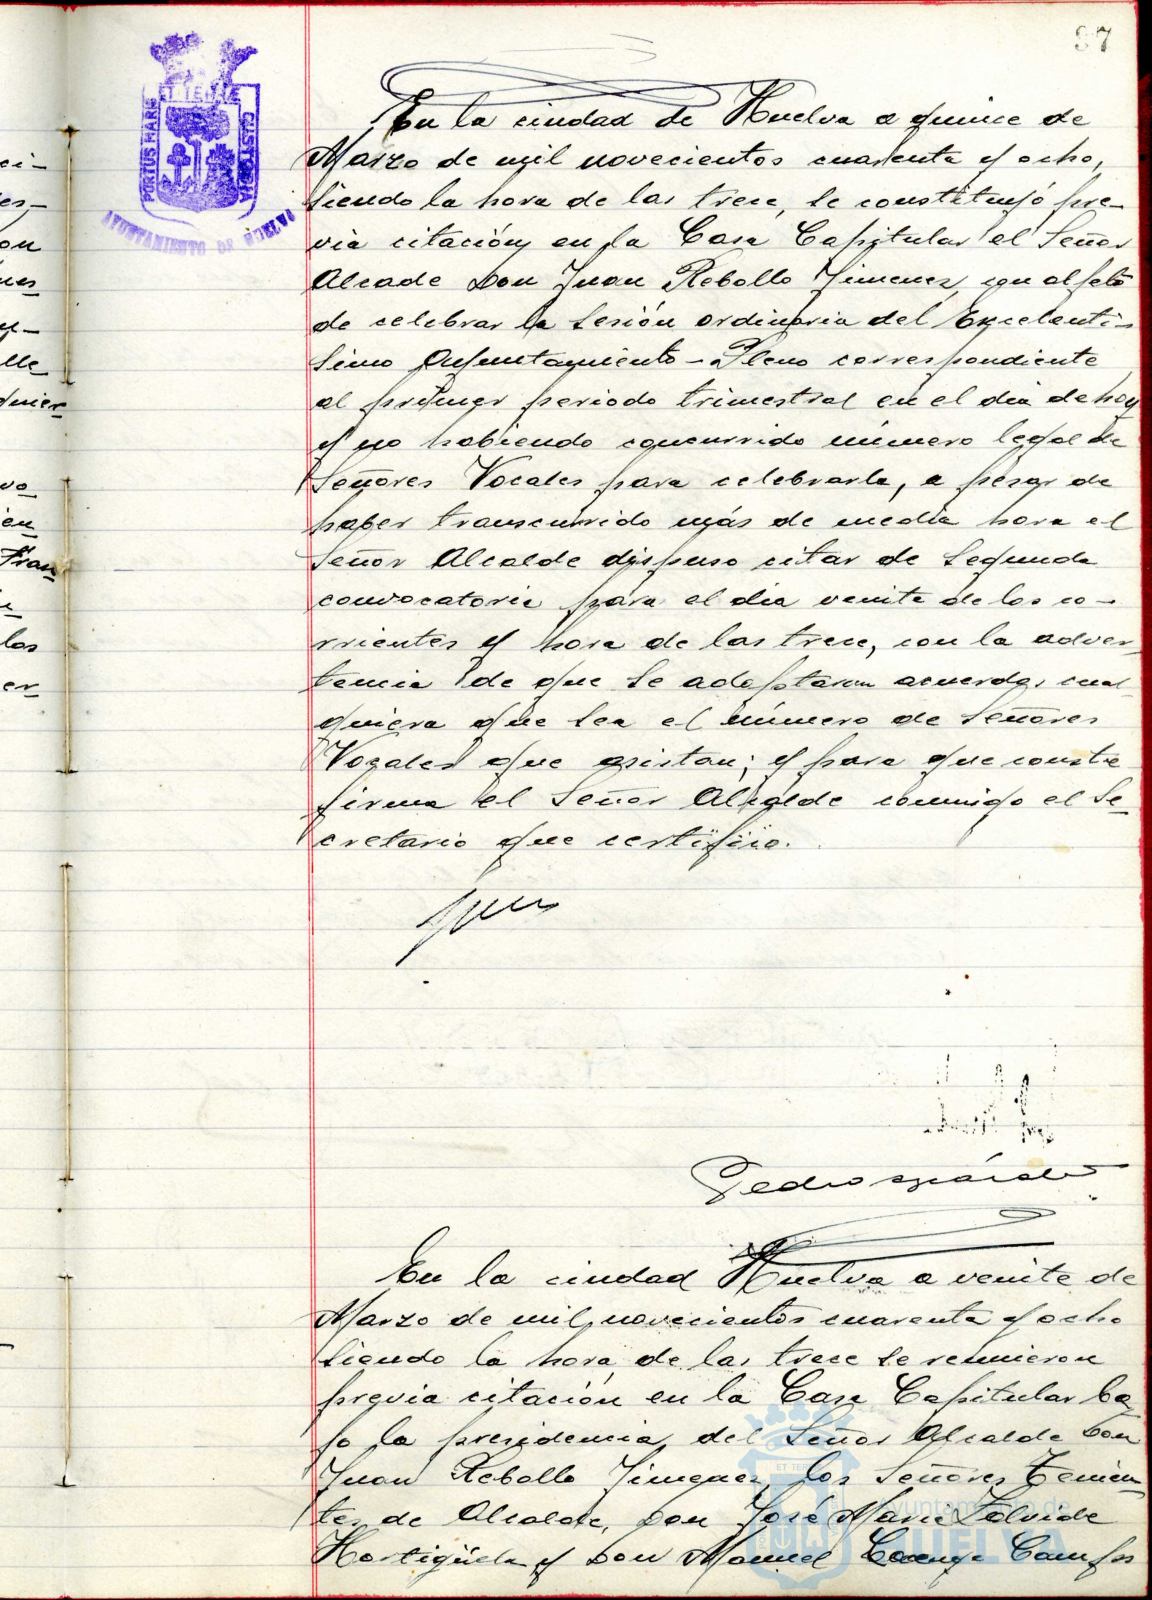 97
ET TERRE
PORTUS MARIS
CUSTODIA
AYUNTAMIENTO DE HUELVA
En la ciudad de Huelva a quince de
Marzo de mil novecientos cuarenta y ocho,
siendo la hora de las trece, se constituyó pre-
via citación en la Casa Capitular el Señor
Alcade Don Juan Rebollo Jimenez, con objeto
de celebrar la sesión ordinaria del Excelenti-
simo Ayuntamiento-Pleno correspondiente
al primer periodo trimestral en el dia de hoy
y no habiendo concurrido número legal de
Señores Vocales para celebrarla, a pesar de
haber transcurrido más de media hora el
Señor Alcalde dispuso citar de segunda
convocatoria para el dia veinte de los co-
rrientes y hora de las trece, con la adver-
tencia de que se adoptaran acuerdos cual
quiera que sea el número de Señores
Vocales que asistan; y para que conste
firma el Señor Alcalde conmigo el Se-
cretario que certifico.
Pedro
En la ciudad Huelva a veinte de
Marzo de mil novecientos cuarenta y ocho
siendo la hora de las trece se reunieron
previa citación en la Casa Capitular ba-
jo la presidencia del Señor Alcalde Don
Juan Rebollo Jimenez, los Señores Tenien-
tes de Alcalde, Don José Maria
Hortigüela y Don Manuel Campos
Ayuntamiento de
HUELVA
ci-
es-
on
nes
y-
lle
quier
vo
ien
Fran
los
er